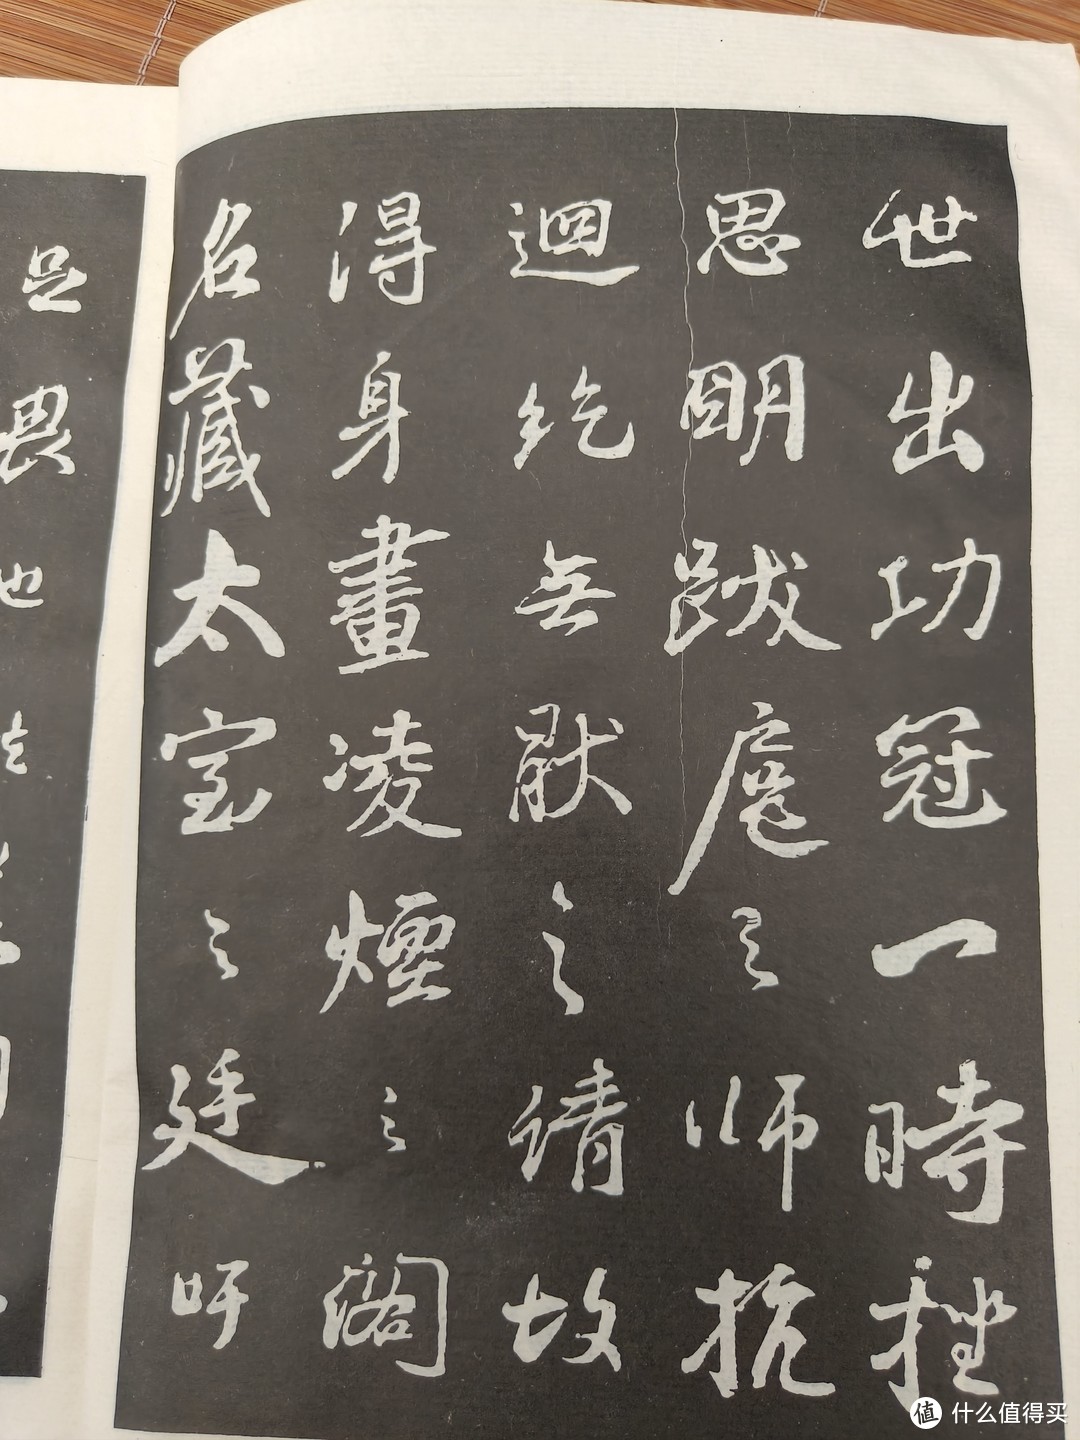 世出功冠一時挫
思明跋扈之师抗
迴紇无猒之請故
得身畫凌煙之阁
名藏太室之廷吁
足畏也
值 什么值得买